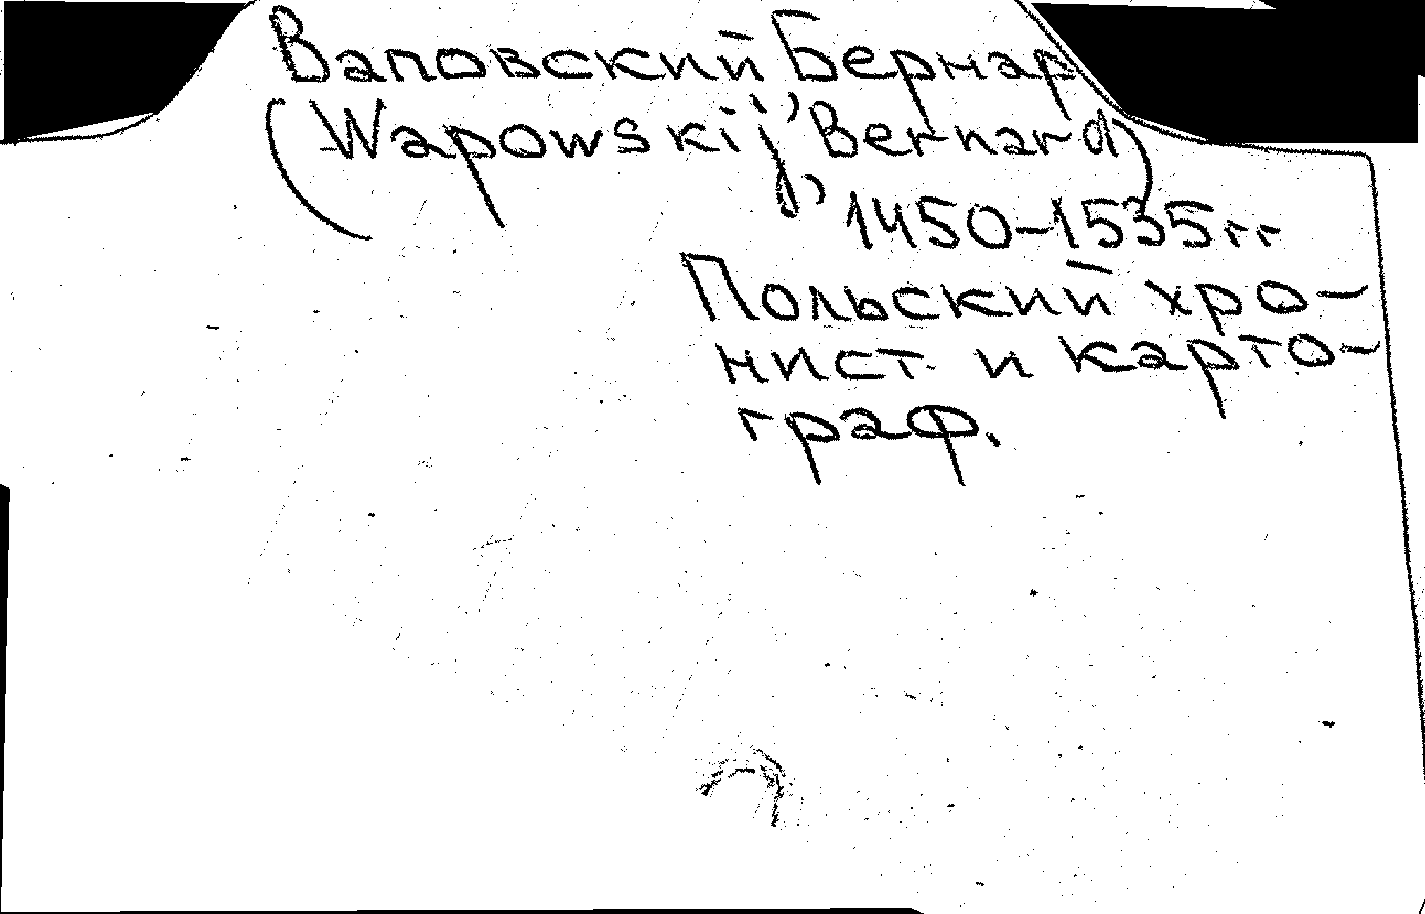 Ваповский Бернар
(Wapowskij, Bernard)
1450-1535гг
Польский хро-
нист и карто-
граф.